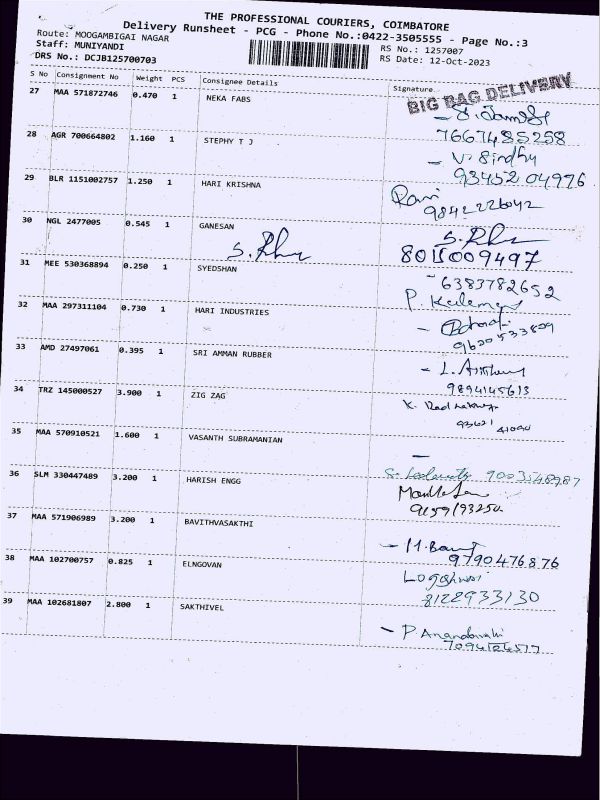 THE PROFESSIONAL COURIERS, COIMBATORE
Delivery Runsheet - PCG - Phone No.:0422-3505555 - Page No.:3
Route: MOOGAMBIGAI NAGAR
Staff: MUNIYANDI RS No.: 1257007
DRS No.: DCJB125700703 RS Date: 12-Oct-2023
S No Consignment No Weight PCS Consignee Details Signature
BIG BAG DELIVERY
27 MAA 571872746 0.470 1 NEKA FABS
7667485258
28 AGR 700664802 1.160 1 STEPHY T J - V. Sindhu
93452 04976
29 BLR 1151002757 1.250 1 HARI KRISHNA Ravi
9842226042
30 NGL 2477005 0.545 1 GANESAN
8015009497
31 MEE 530368894 0.250 1 SYEDSHAN
6383782652
32 MAA 297311104 0.730 1 HARI INDUSTRIES
33 AMD 27497061 0.395 1 SRI AMMAN RUBBER
9894145613
34 TRZ 145000527 3.900 1 ZIG ZAG
35 MAA 570910521 1.600 1 VASANTH SUBRAMANIAN
36 SLM 330447489 3.200 1 HARISH ENGG
37 MAA 571906989 3.200 1 BAVITHVASAKTHI
9790476876
38 MAA 102700757 0.825 1 ELNGOVAN
8122933130
39 MAA 102681807 2.800 1 SAKTHIVEL